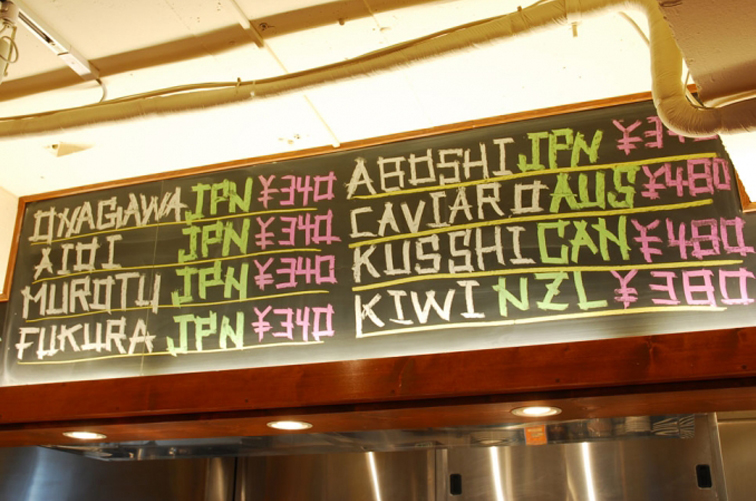 ONAGAWA JPN ¥340
AIOI JPN ¥340
MUROTU JPN ¥340
FUKURA JPN ¥340
ABOSHI JPN
CAVIARO AUS ¥480
KUSSHI CAN ¥480
KIWI NZL ¥380